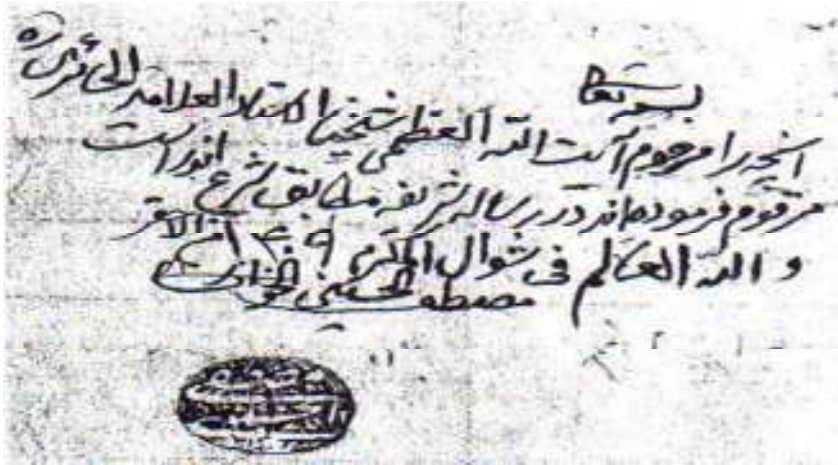 بسمه تعالی
آنچه را مرحوم آیت الله العظمی شیخنا الاستاد العلامه الحائری ره
مرقوم فرموده‌اند در رساله شریفه مطابق شرع انور است
و الله العالم فی شوال المکرم الاحقر
مصطفی الحسینی